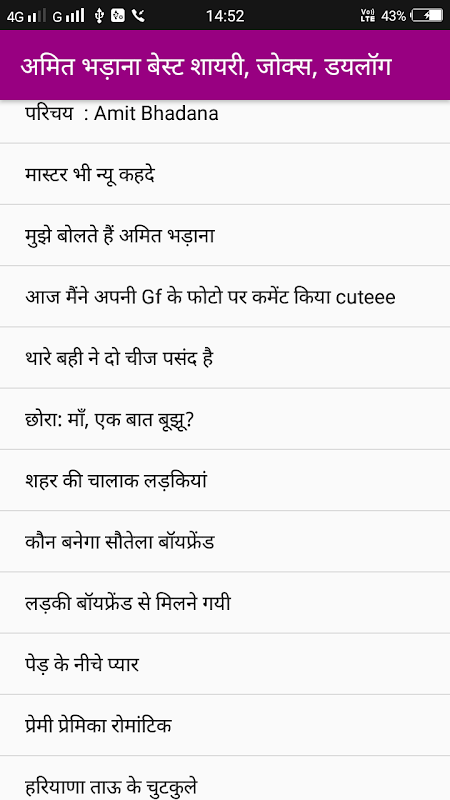 4G G 14:52 Vo)) LTE 43%
अमित भड़ाना बेस्ट शायरी, जोक्स, डयलॉग
परिचय : Amit Bhadana
मास्टर भी न्यू कहदे
मुझे बोलते हैं अमित भड़ाना
आज मैंने अपनी Gf के फोटो पर कमेंट किया cuteee
थारे बही ने दो चीज पसंद है
छोरा: माँ, एक बात बूझू?
शहर की चालाक लड़कियां
कौन बनेगा सौतेला बॉयफ्रेंड
लड़की बॉयफ्रेंड से मिलने गयी
पेड़ के नीचे प्यार
प्रेमी प्रेमिका रोमांटिक
हरियाणा ताऊ के चुटकुले